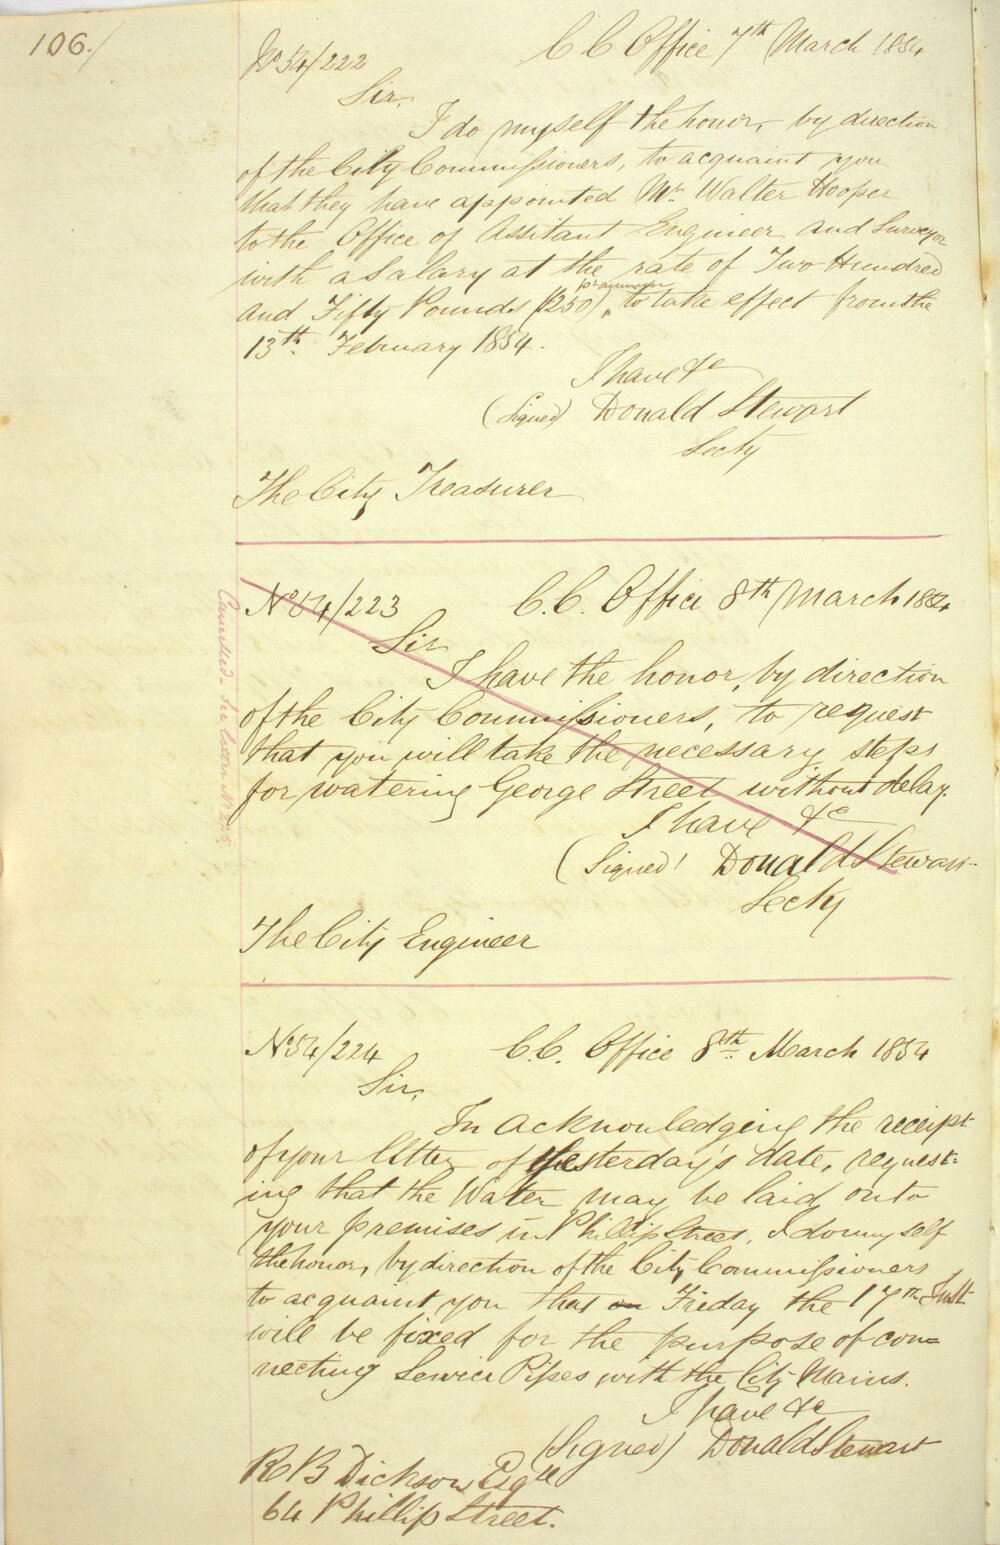 106./
No 54/222
C C Office 7th March 1854
Sir,
I do myself the honor, by direction
of the City Commissioners, to acquaint you
that they have appointed Mr. Walter Hooper
to the Office of Assitant Engineer and Surveyor
with a Salary at the rate of Two Hundred
and Fifty Pounds (250) pr annum, to take effect from the
13th February 1854.
I have &c
(Signed) Donald Stewart
Secty
The City Treasurer
Cancelled. See letter No 225
No 54/223
C.C. Office 8th March 1854
Sir
I have the honor, by direction
of the City Commissioners, to request
that you will take the necessary steps
for watering George Street without delay.
I have &c
(Signed) Donald Stewart
Secty
The City Engineer
No 54/224
C.C. Office 8th March 1854
Sir,
In acknowledging the receipt
of your letter of yesterday's date, request-
ing that the Water may be laid onto
your premises in Phillip Street, I do myself
the honor, by direction of the City Commissioners
to acquaint you that on Friday the 17th Inst
will be fixed for the purpose of con=
necting Service Pipes with the City Mains.
I have &c
(Signed) Donald Stewart
R B Dickson Esqre
64 Phillip Street.